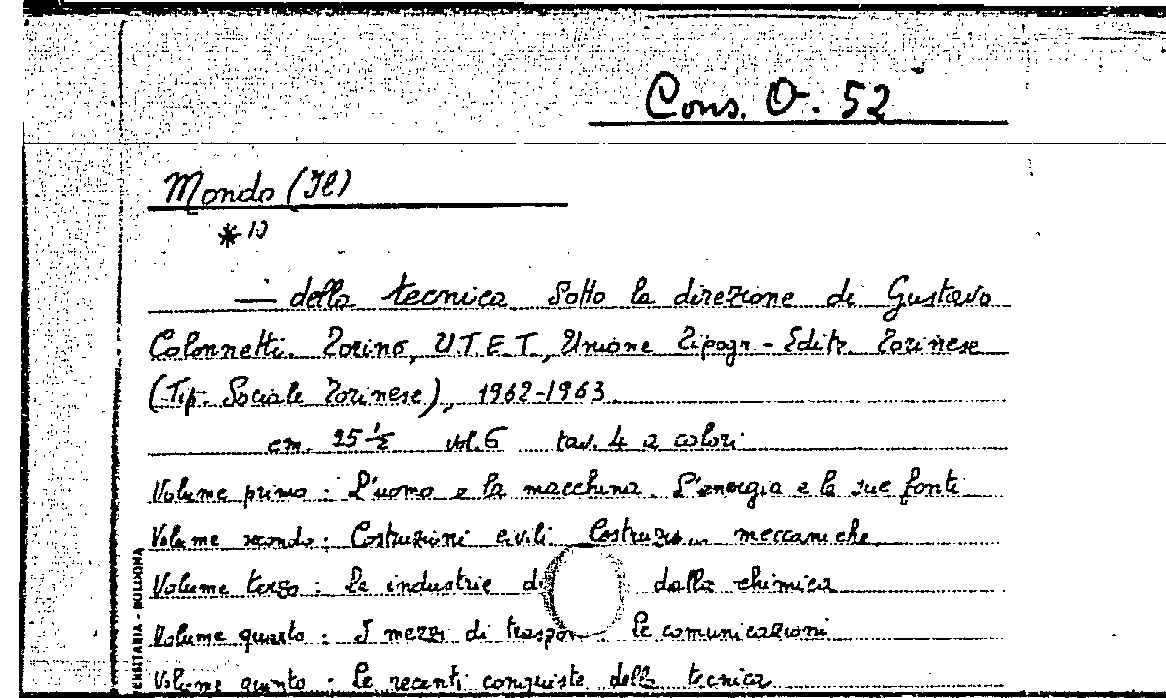 Cons. O. 52
Mondo (Il)
* 1)
— della tecnica Sotto la direzione di Gustavo
Colonnetti. Torino, U.T.E.T., Unione Tipogr.-Editr. Torinese
(Tip. Sociale Torinese), 1962-1963
cm. 25½ vol. 6 tav. 4 a colori
Volume primo: L'uomo e la macchina. L'energia e le sue fonti
Volume secondo: Costruzioni civili. Costruzion meccaniche.
Volume terzo: Le industrie dalla chimica
Volume quarto: I mezzi di traspor Le comunicazioni
Volume quinto: Le recenti conquiste della tecnica
VERSITARIA - BOLOGNA